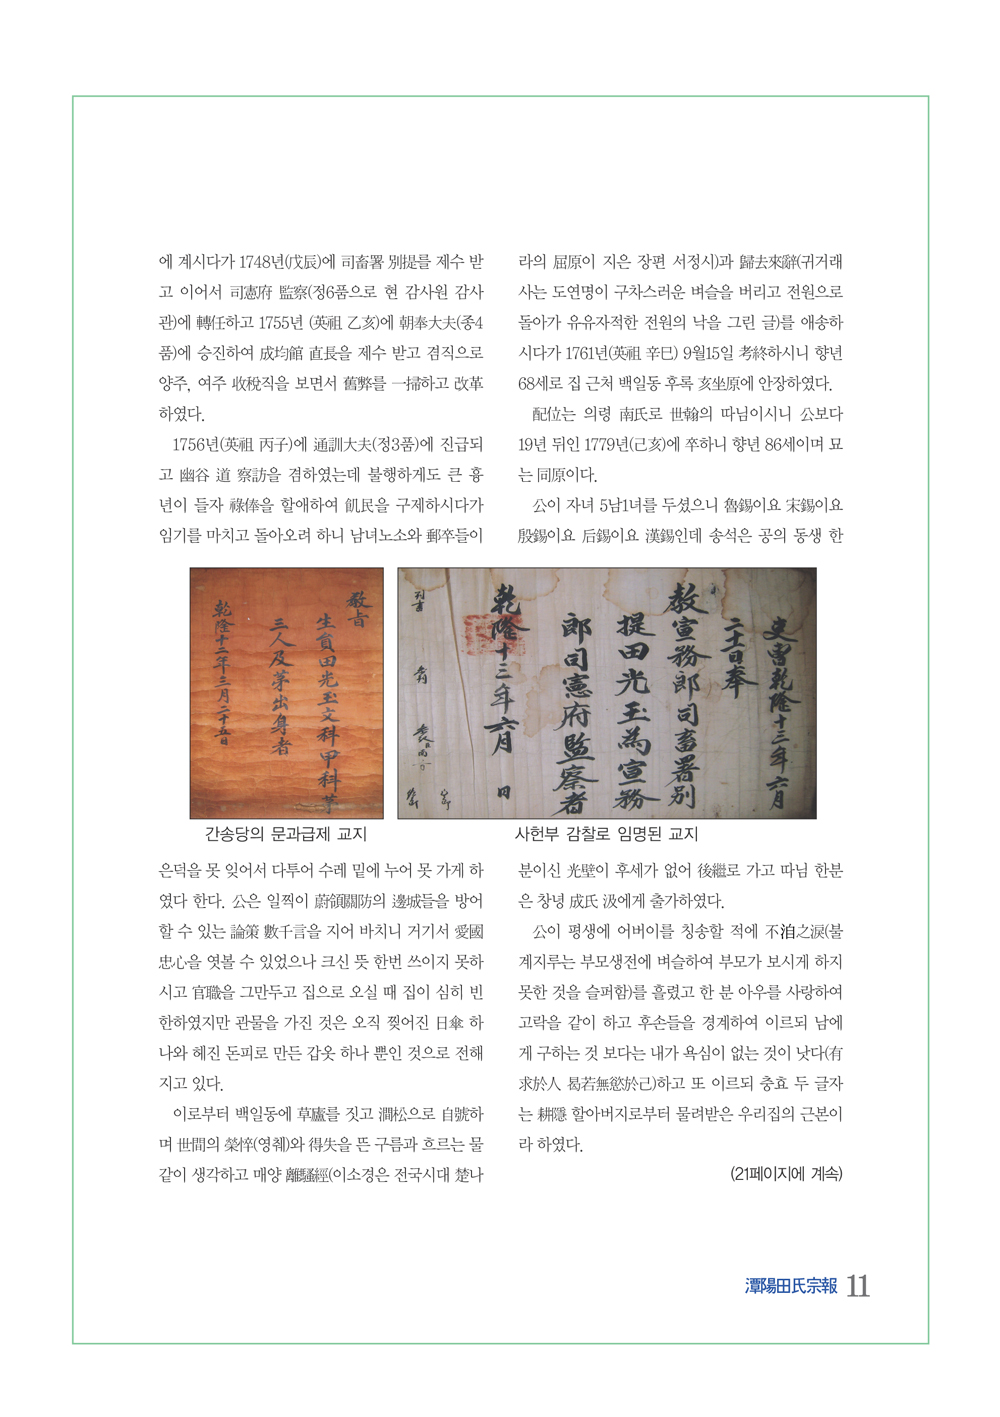 에 계시다가 1748년(戊辰)에 司畜署 別提를 제수 받
고 이어서 司憲府 監察(정6품으로 현 감사원 감사
관)에 轉任하고 1755년 (英祖 乙亥)에 朝奉大夫(종4
품)에 승진하여 成均館 直長을 제수 받고 겸직으로
양주, 여주 收稅직을 보면서 舊弊를 一掃하고 改革
하였다.
1756년(英祖 丙子)에 通訓大夫(정3품)에 진급되
고 幽谷 道 察訪을 겸하였는데 불행하게도 큰 흉
년이 들자 祿俸을 할애하여 飢民을 구제하시다가
임기를 마치고 돌아오려 하니 남녀노소와 郵卒들이
은덕을 못 잊어서 다투어 수레 밑에 누어 못 가게 하
였다 한다. 公은 일찍이 蔚領關防의 邊城들을 방어
할 수 있는 論策 數千言을 지어 바치니 거기서 愛國
忠心을 엿볼 수 있었으나 크신 뜻 한번 쓰이지 못하
시고 官職을 그만두고 집으로 오실 때 집이 심히 빈
한하였지만 관물을 가진 것은 오직 찢어진 日傘 하
나와 헤진 돈피로 만든 갑옷 하나 뿐인 것으로 전해
지고 있다.
이로부터 백일동에 草廬를 짓고 澗松으로 自號하
며 世間의 榮悴(영췌)와 得失을 뜬 구름과 흐르는 물
같이 생각하고 매양 離騷經(이소경은 전국시대 楚나
라의 屈原이 지은 장편 서정시)과 歸去來辭(귀거래
사는 도연명이 구차스러운 벼슬을 버리고 전원으로
돌아가 유유자적한 전원의 낙을 그린 글)를 애송하
시다가 1761년(英祖 辛巳) 9월15일 考終하시니 향년
68세로 집 근처 백일동 후록 亥坐原에 안장하였다.
配位는 의령 南氏로 世翰의 따님이시니 公보다
19년 뒤인 1779년(己亥)에 卒하니 향년 86세이며 묘
는 同原이다.
公이 자녀 5남1녀를 두셨으니 魯錫이요 宋錫이요
殷錫이요 后錫이요 漢錫인데 송석은 공의 동생 한
분이신 光壁이 후세가 없어 後繼로 가고 따님 한분
은 창녕 成氏 汲에게 출가하였다.
公이 평생에 어버이를 칭송할 적에 不洎之淚(불
계지루는 부모생전에 벼슬하여 부모가 보시게 하지
못한 것을 슬퍼함)를 흘렸고 한 분 아우를 사랑하여
고락을 같이 하고 후손들을 경계하여 이르되 남에
게 구하는 것 보다는 내가 욕심이 없는 것이 낫다(有
求於人 曷若無慾於己)하고 또 이르되 충효 두 글자
는 耕隱 할아버지로부터 물려받은 우리집의 근본이
라 하였다.
(21페이지에 계속)
敎旨
生員田光玉文科甲科苐
三人及苐出身者
乾隆十二年三月二十五日
간송당의 문과급제 교지
吏曹乾隆十三年六月
二十一日奉
敎宣務郎司畜署別
提田光玉為宣務
郎司憲府監察者
乾隆十三年六月 日
사헌부 감찰로 임명된 교지
潭陽田氏宗報 11